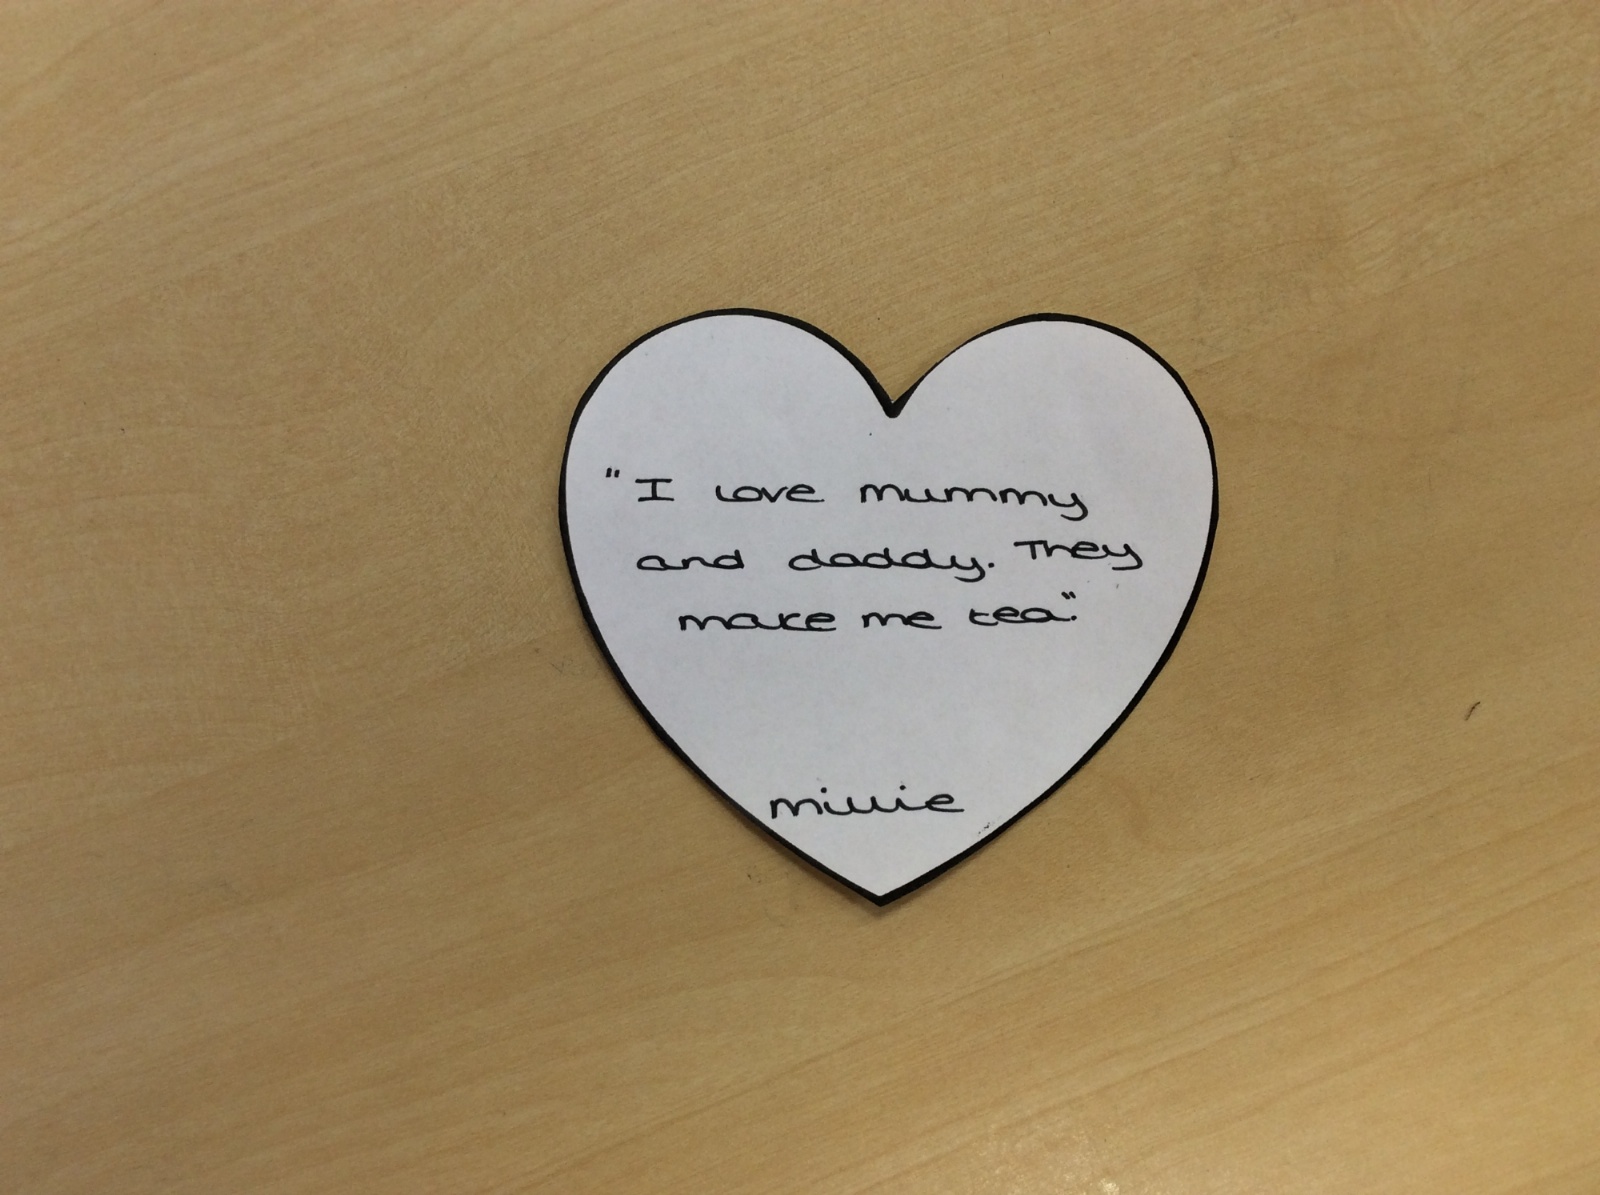 "I love mummy
and daddy. They
make me tea."
millie